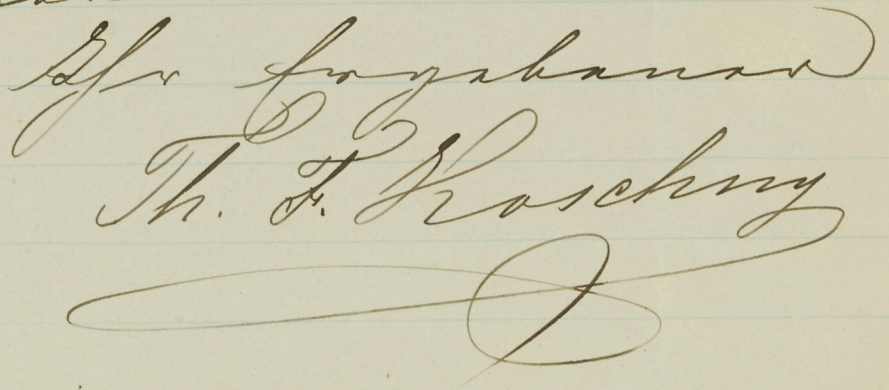 Ihr Ergebener
Th. F. Koschny